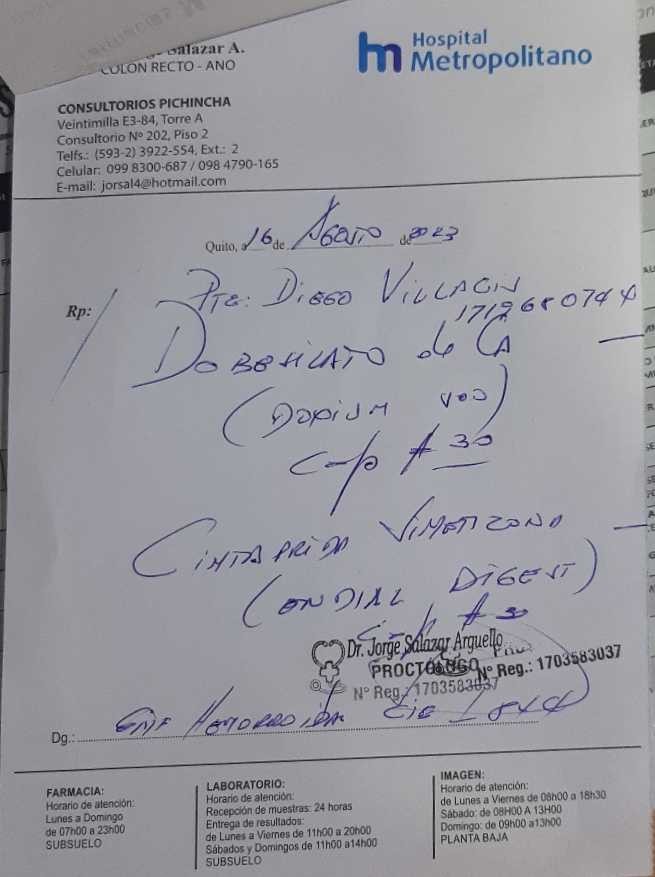 Salazar A.
COLON RECTO - ANO
Hospital
Metropolitano
CONSULTORIOS PICHINCHA
Veintimilla E3-84, Torre A
Consultorio Nº 202, Piso 2
Telfs.: (593-2) 3922-554, Ext.: 2
Celular: 099 8300-687 / 098 4790-165
E-mail: jorsal4@hotmail.com
Quito, a 16 de Agosto de 2023
Rp:
Pte: Diego Villacis
1712680744
Dobesilato de Ca
(Doxium 400)
cap # 30
Cintaprida Simeticona
(Endial Digest)
# 30
Dr. Jorge Salazar Arguello
PROCTOLOGO
Nº Reg.: 1703583037
Nº Reg.: 1703583037
Dg.: Enf Hemorroidal Cie I 844
FARMACIA:
Horario de atención:
Lunes a Domingo
de 07h00 a 23h00
SUBSUELO
LABORATORIO:
Horario de atención:
Recepción de muestras: 24 horas
Entrega de resultados:
de Lunes a Viernes de 11h00 a 20h00
Sábados y Domingos de 11h00 a14h00
SUBSUELO
IMAGEN:
Horario de atención:
de Lunes a Viernes de 08h00 a 18h30
Sábado: de 08H00 A 13H00
Domingo: de 09h00 a13h00
PLANTA BAJA